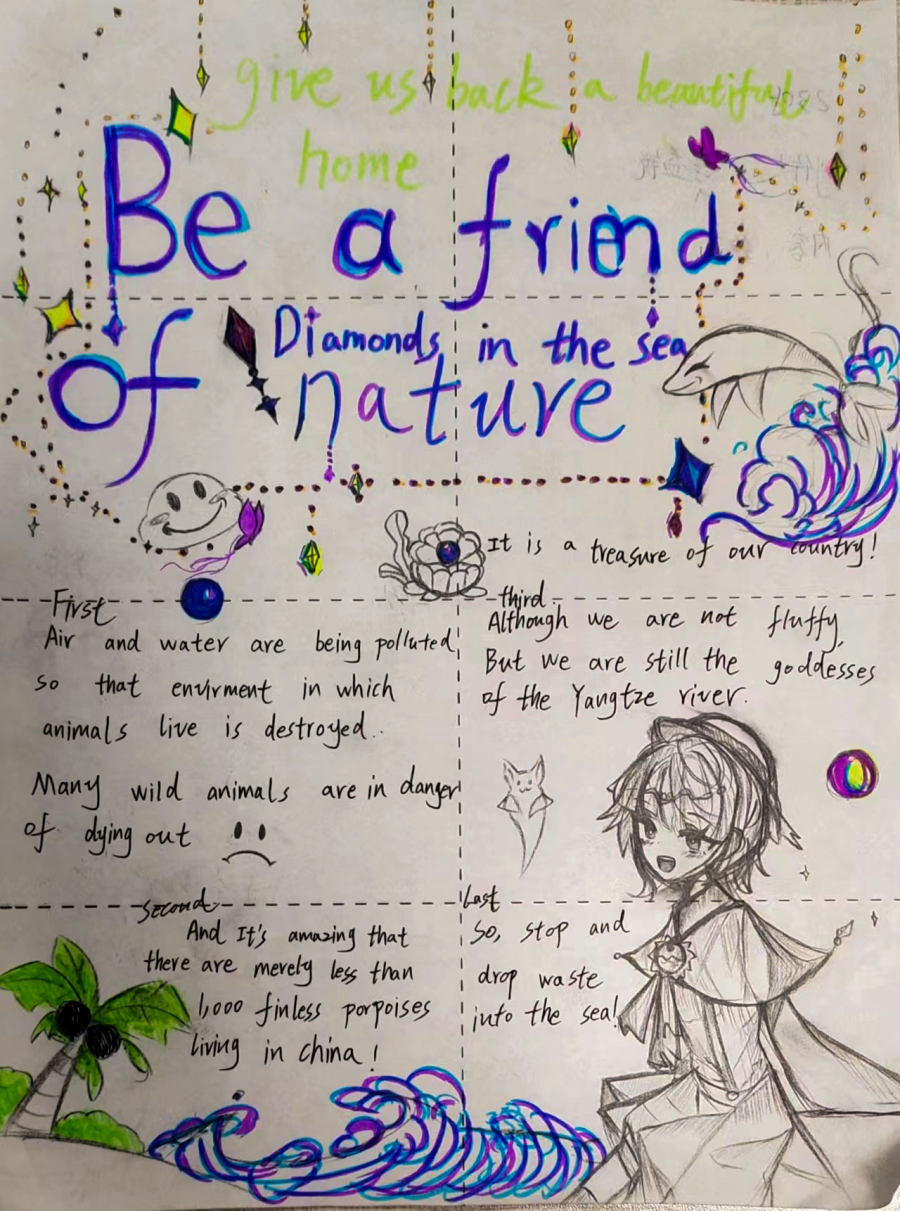 give us back a beautiful
home
Be a friend
of
Diamonds in the sea
nature
It is a treasure of our country!
First
Air and water are being polluted
so that envirment in which
animals live is destroyed..
Many wild animals are in danger
of dying out
Second
And It's amazing that
there are merely less than
1,000 finless porpoises
living in china!
third
Although we are not fluffy,
But we are still the goddesses
of the Yangtze river.
Last
So, stop and
drop waste
into the sea!